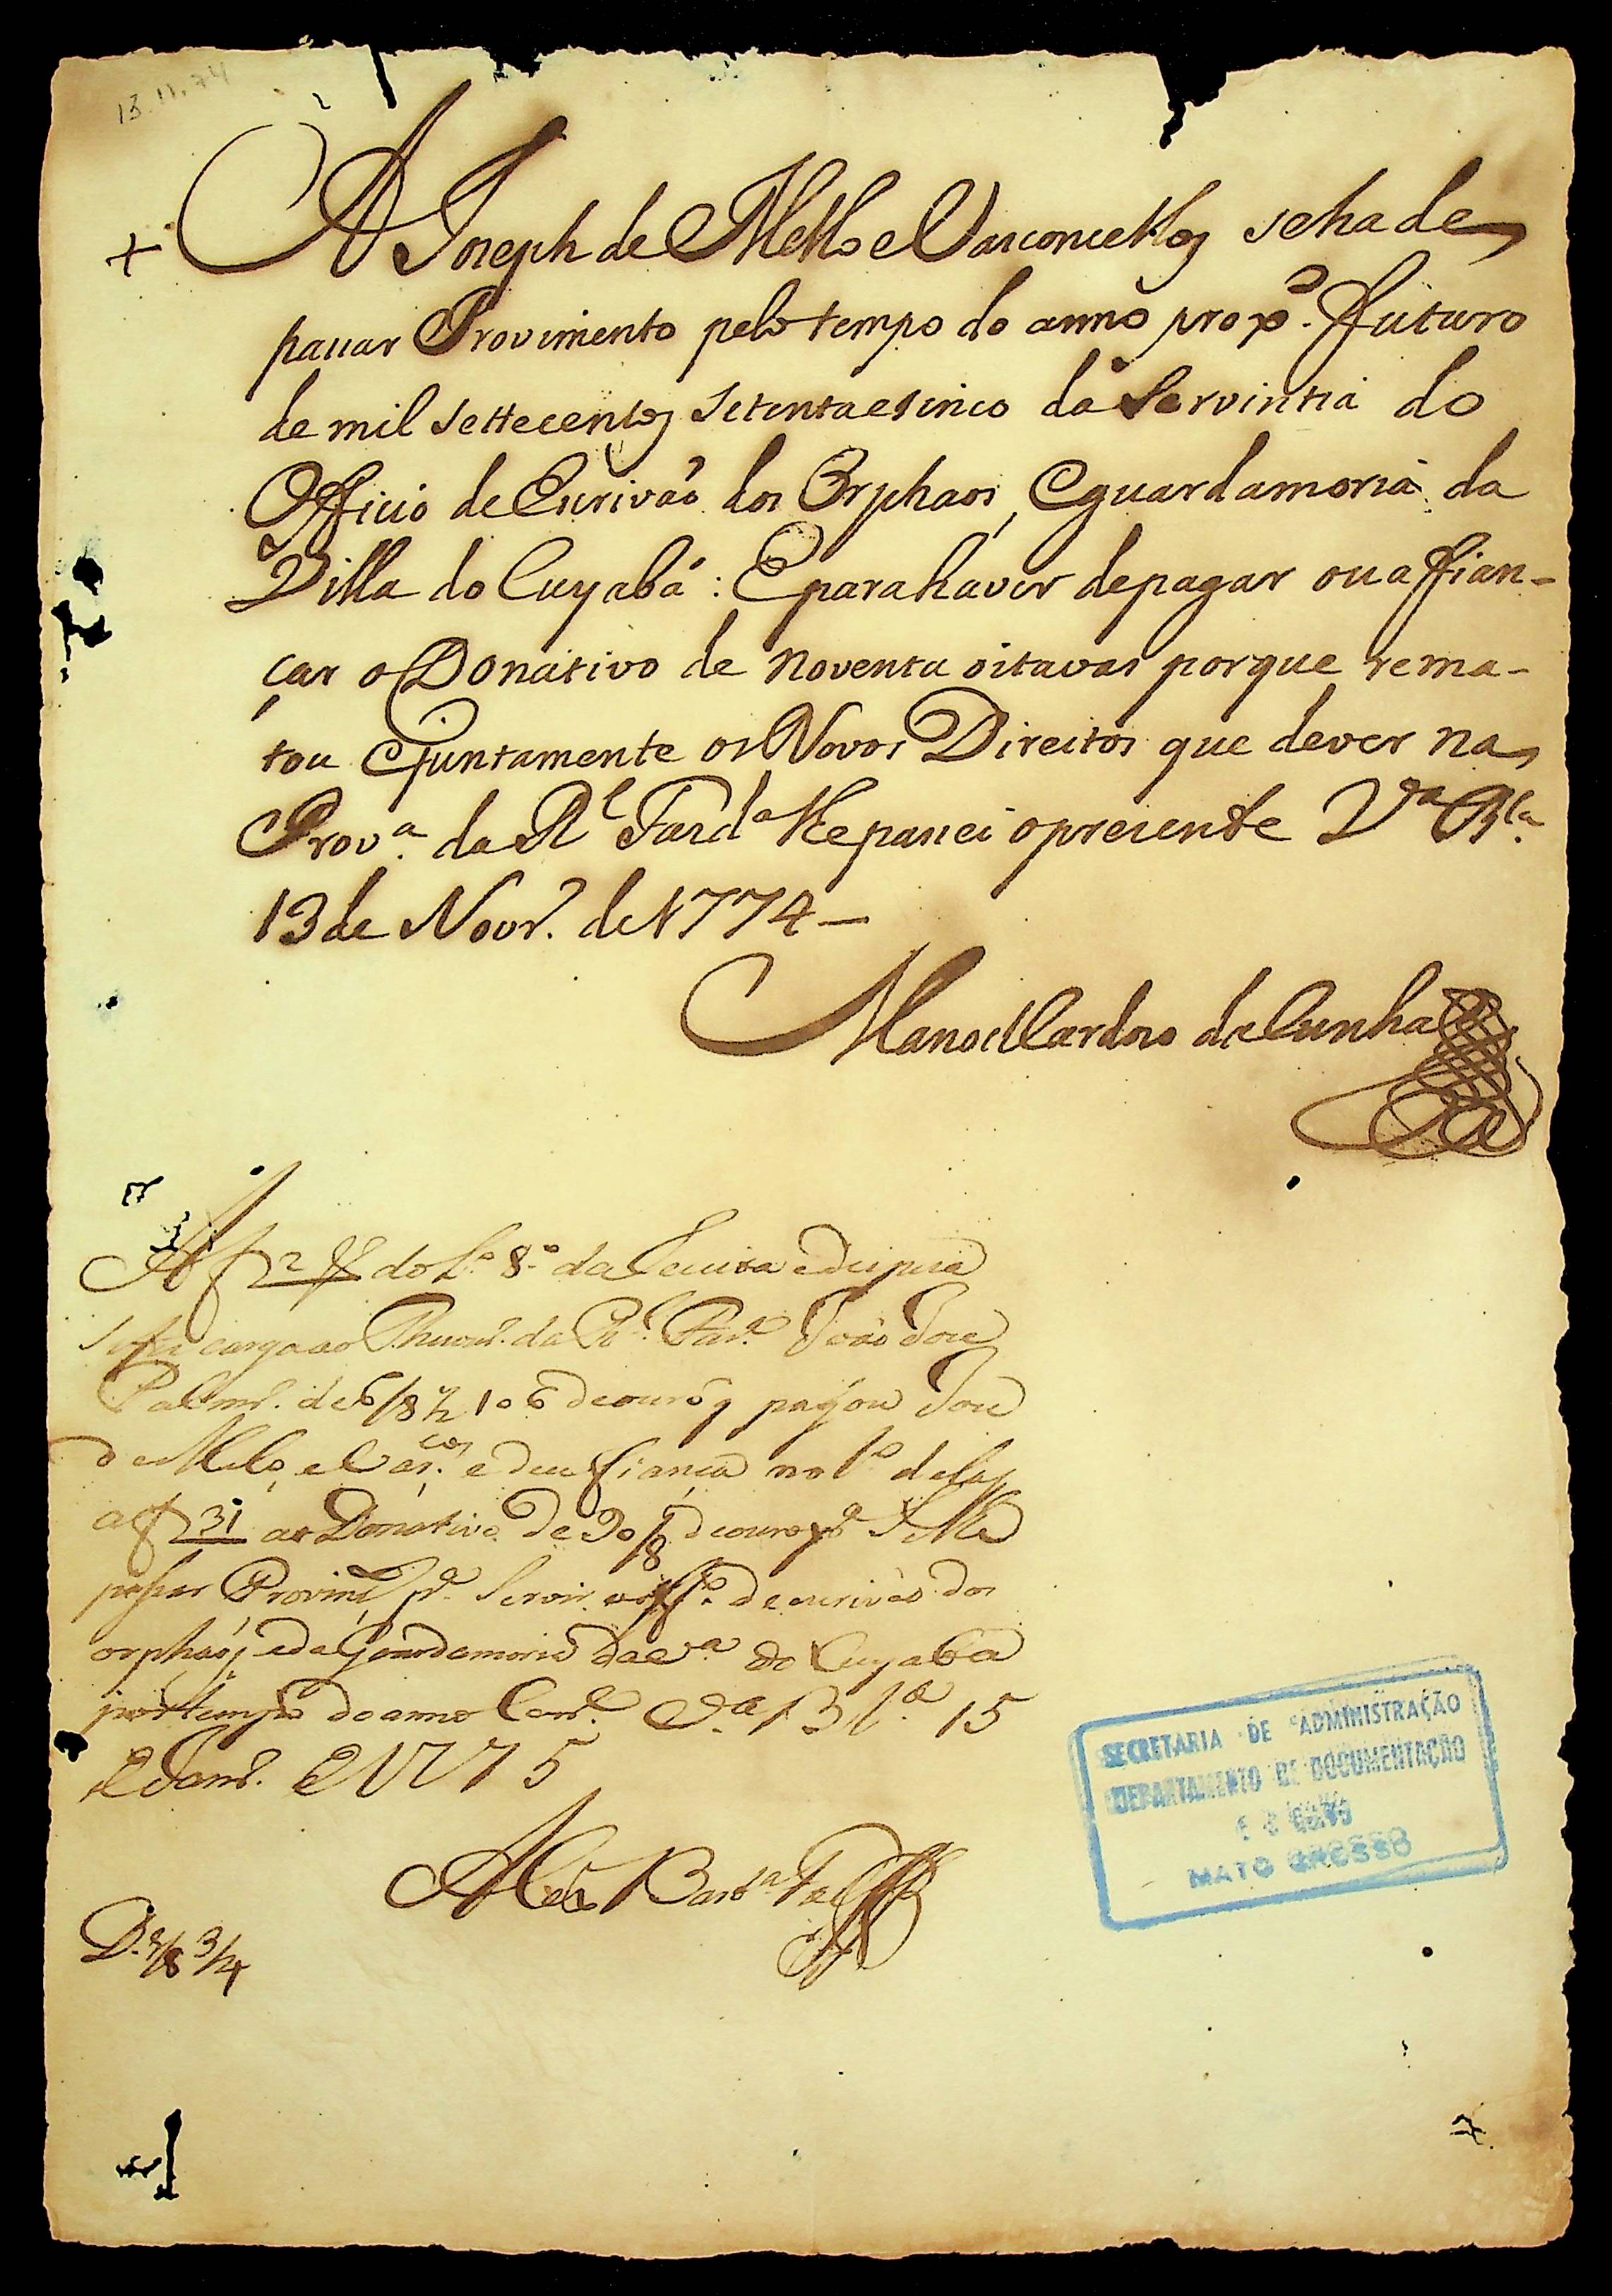 13.11.74
A Joseph de Mello e Vasconcellos se ha de
passar Provimento pelo tempo do anno proxº. Futuro
de mil settecentos setenta e sinco da Serventia do
Officio de Escrivão dos Orphaos, e guardamoria da
Villa do Cuyabá: E para haver de pagar ou affian-
çar o Donativo de noventa oitavas porque rema-
tou e juntamente os Novos Direitos que dever na
Prov.ª da Rl Fazdª lhe passei o presente Vª Bla.
13 de Novr.º de 1774 —
Manoel Cardozo da Cunha
A f 2 do Lº 8º da Receita e despesa
se fez carga ao Thezrº. da Rl. Fazª. João Joze
de ouro q pagou Joze
de Mello e Vascos. e deu fiança no Lº dellas
a f 31 ao Donativo de 90/8 de ouro pª se lhe
passar Provimtº pª. Servir o offº. de escrivão dos
orphaos e da Guardamoria da Vª do Cuyaba
por tempo do anno Corrº. Vª Bª 15
de Janrº. de 1775
D. 3/4
SECRETARIA DE ADMINISTRAÇÃO
DEPARTAMENTO DE DOCUMENTAÇÃO
MATO GROSSO